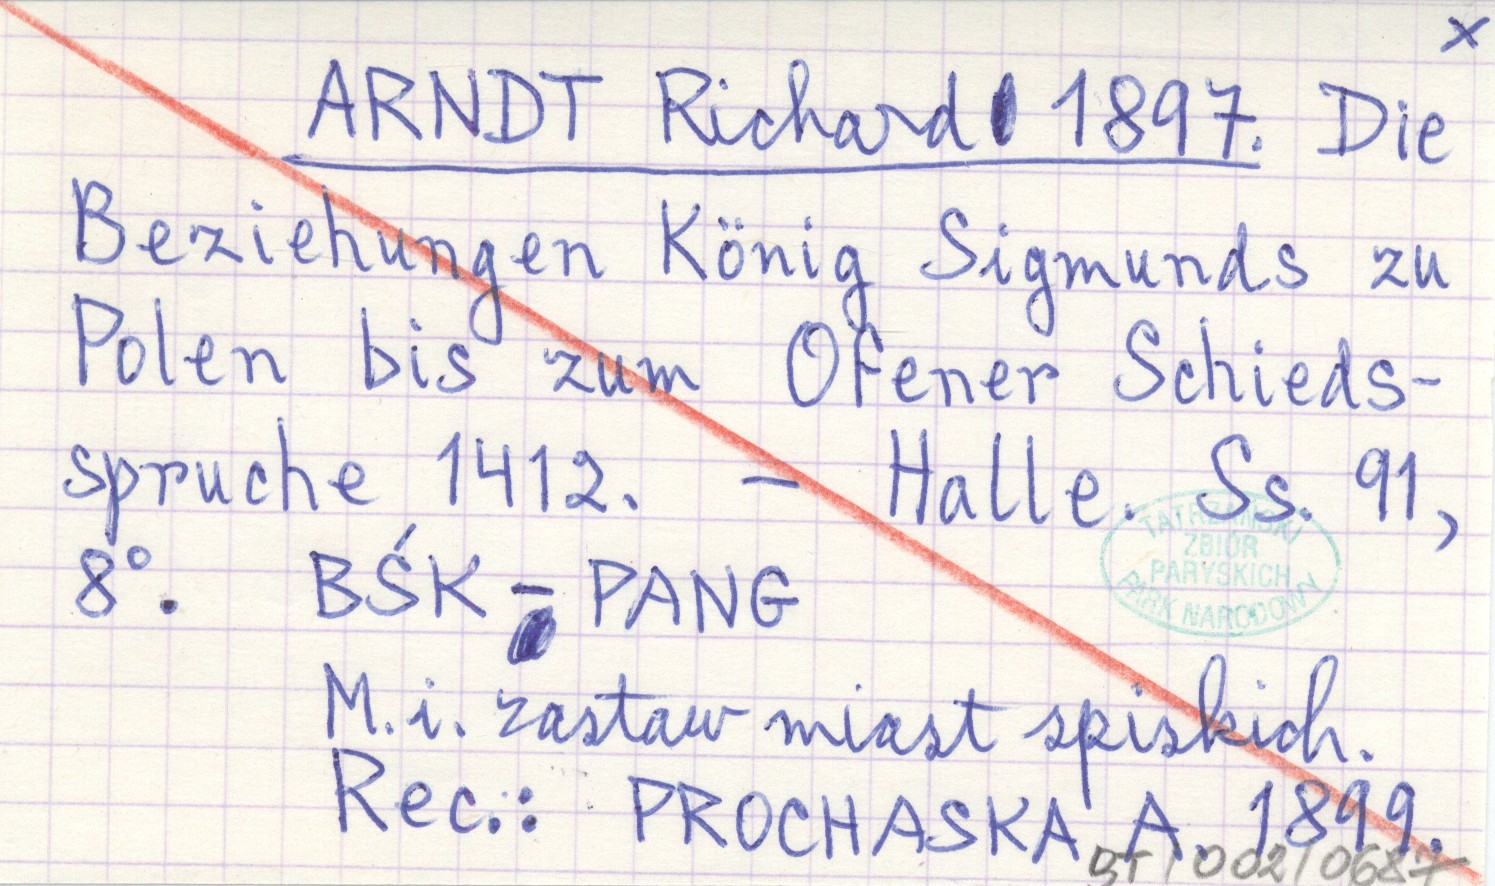 x
ARNDT Richard 1897. Die
Beziehungen König Sigmunds zu
Polen bis zum Ofener Schieds-
spruche 1412. – Halle. Ss. 91,
8°. BŚK – PANG
TATRZAŃSKI
ZBIÓR
PARYSKICH
PARK NARODOWY
M.i. zastaw miast spiskich.
Rec.: PROCHASKA A. 1899.
BT/002/0687